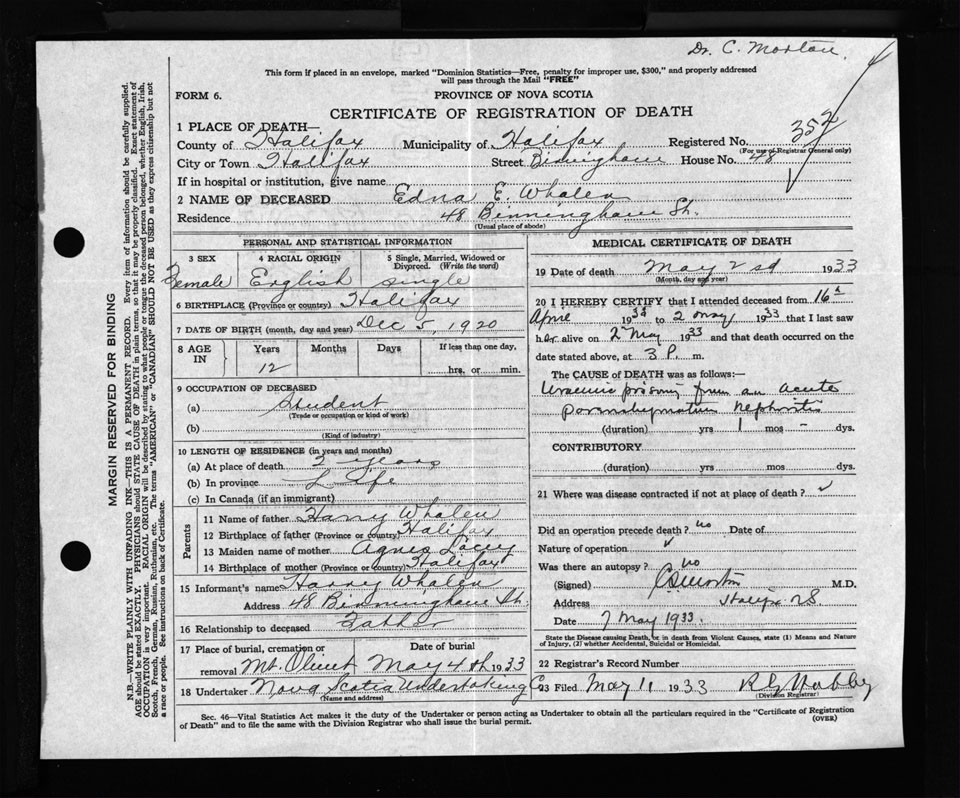 Dr. C. Morton
This form if placed in an envelope, marked "Dominion Statistics—Free, penalty for improper use, $300," and properly addressed
will pass through the Mail "FREE"
FORM 6.
PROVINCE OF NOVA SCOTIA
CERTIFICATE OF REGISTRATION OF DEATH
1 PLACE OF DEATH—
County of Halifax Municipality of Halifax Registered No. 352
(For use of Registrar General only)
City or Town Halifax Street Birmingham House No. 48
If in hospital or institution, give name
2 NAME OF DECEASED Edna E. Whalen
Residence 48 Binningham St.
(Usual place of abode)
PERSONAL AND STATISTICAL INFORMATION
3 SEX 4 RACIAL ORIGIN 5 Single, Married, Widowed or Divorced. (Write the word)
Female English single
6 BIRTHPLACE (Province or country) Halifax
7 DATE OF BIRTH (month, day and year) Dec 5, 1920
8 AGE IN Years Months Days If less than one day,
12 hrs. or min.
9 OCCUPATION OF DECEASED
(a) Student
(Trade or occupation or kind of work)
(b)
(Kind of industry)
10 LENGTH OF RESIDENCE (in years and months)
(a) At place of death 2 years
(b) In province Life
(c) In Canada (if an immigrant)
Parents
11 Name of father Harry Whalen
12 Birthplace of father (Province or country) Halifax
13 Maiden name of mother Agnes Lacey
14 Birthplace of mother (Province or country) Halifax
15 Informant's name Harry Whalen
Address 48 Binningham St.
16 Relationship to deceased Father
17 Place of burial, cremation or removal Date of burial
Mt. Olivet May 4th 1933
18 Undertaker Nova Scotia Undertaking Co
(Name and address)
MEDICAL CERTIFICATE OF DEATH
19 Date of death May 2nd 1933
(Month, day and year)
20 I HEREBY CERTIFY that I attended deceased from 16th
April 1933 to 2 May 1933 that I last saw
her alive on 2 May 1933 and that death occurred on the
date stated above, at 3 P. m.
The CAUSE of DEATH was as follows:—
Uraemic poisoning from an acute
parenchymatous nephritis
(duration) yrs 1 mos - dys.
CONTRIBUTORY
(duration) yrs mos dys.
21 Where was disease contracted if not at place of death?
Did an operation precede death? no Date of
Nature of operation
Was there an autopsy? no
(Signed) C S Morton M.D.
Address Halifax NS
Date 7 May 1933.
State the Disease causing Death, or in death from Violent Causes, state (1) Means and Nature
of Injury, (2) whether Accidental, Suicidal or Homicidal.
22 Registrar's Record Number
23 Filed May 11 1933
(Division Registrar)
Sec. 46—Vital Statistics Act makes it the duty of the Undertaker or person acting as Undertaker to obtain all the particulars required in the "Certificate of Registration
of Death" and to file the same with the Division Registrar who shall issue the burial permit.
(OVER)
MARGIN RESERVED FOR BINDING
N.B.—WRITE PLAINLY WITH UNFADING INK—THIS IS A PERMANENT RECORD. Every item of information should be carefully supplied.
AGE should be stated EXACTLY. PHYSICIANS should STATE CAUSE OF DEATH in plain terms, so that it may be properly classified. Exact statement of
OCCUPATION is very important. RACIAL ORIGIN will be described by stating to what people or tongue the deceased person belonged, whether English, Irish,
Scotch, French, German, Russian, Ruthenian, etc. The terms "AMERICAN" or "CANADIAN" SHOULD NOT BE USED as they express citizenship but not
a race or people. See instructions on back of Certificate.